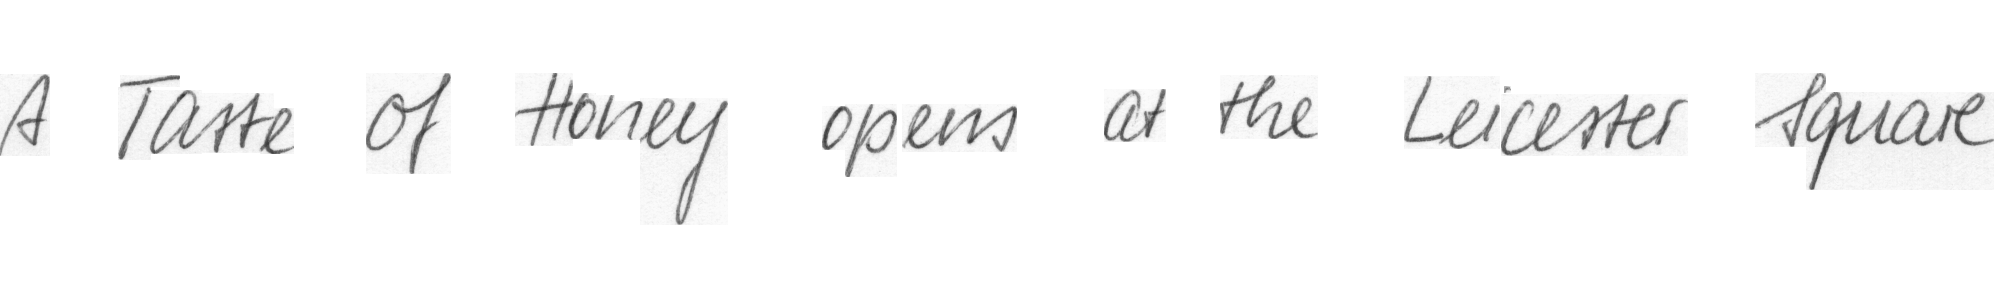 A Taste of Honey opens at the Leicester Square